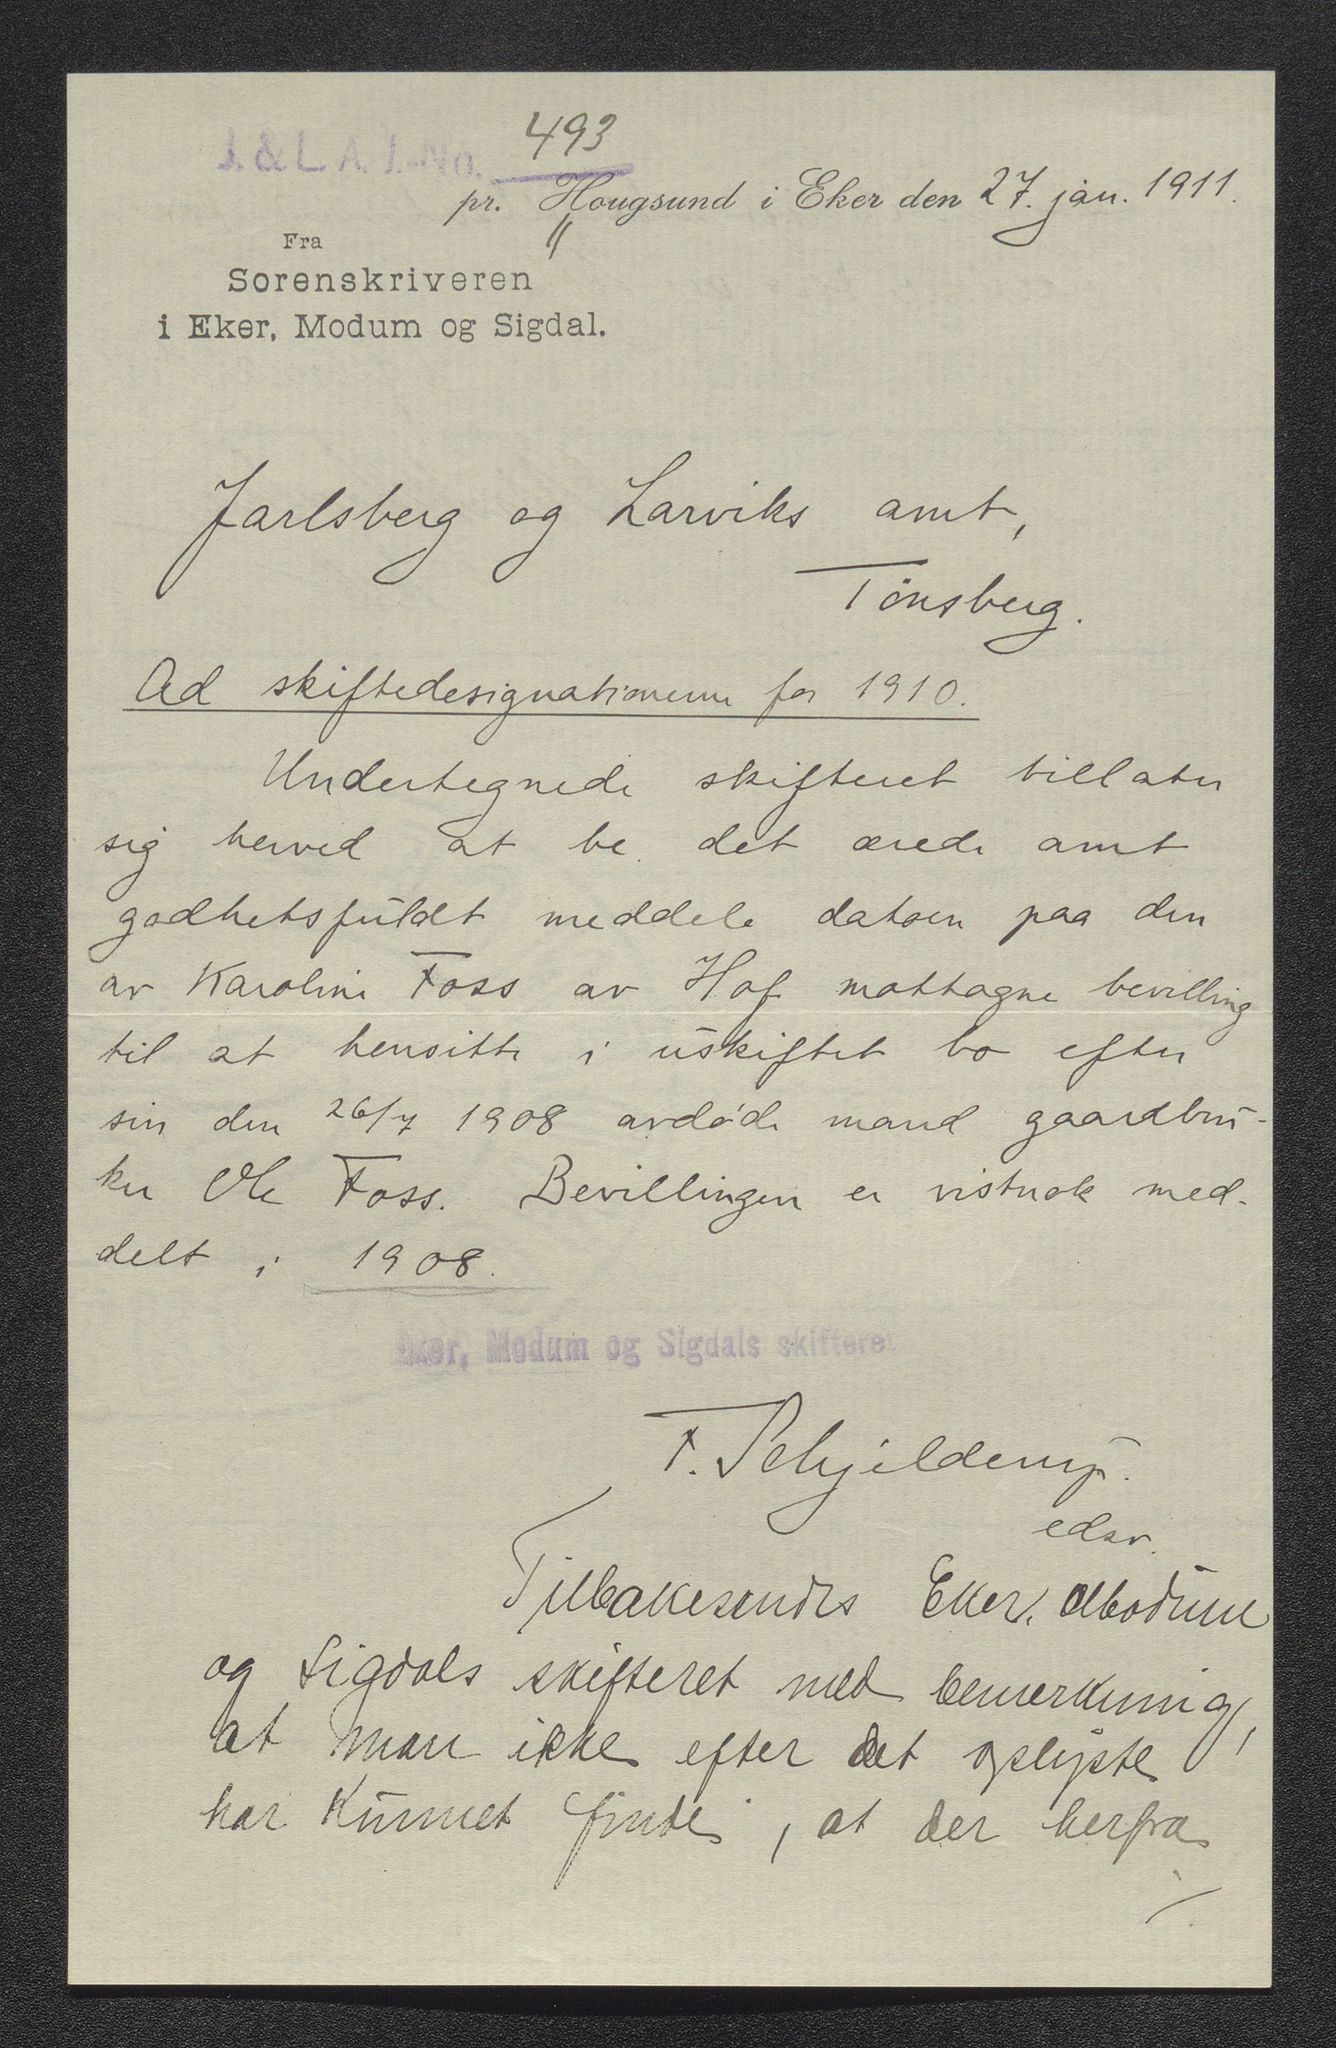 J. & L. A. J.-No. 493
pr. Hougsund i Eker den 27. jan. 1911.
Fra
Sorenskriveren
i Eker, Modum og Sigdal.
Jarlsberg og Larviks amt,
Tønsberg.
Ad skiftedesignationerne for 1910.
Undertegnede skifteret tillater
sig herved at be det ærede amt
godhetsfuldt meddele datoen paa den
av Karoline Foss av Hof mottagne bevilling
til at hensitte i uskiftet bo efter
sin den 26/7 1908 avdøde mand gaardbru-
ker Ole Foss. Bevillingen er vistnok med-
delt i 1908.
Eker, Modum og Sigdals skifteret
F. Schjelderup.
edsv.
Tilbakesendes Eker, Modum
og Sigdals skifteret med bemerkning,
at man ikke efter det oplyste
har kunnet finde, at der herfra
./.